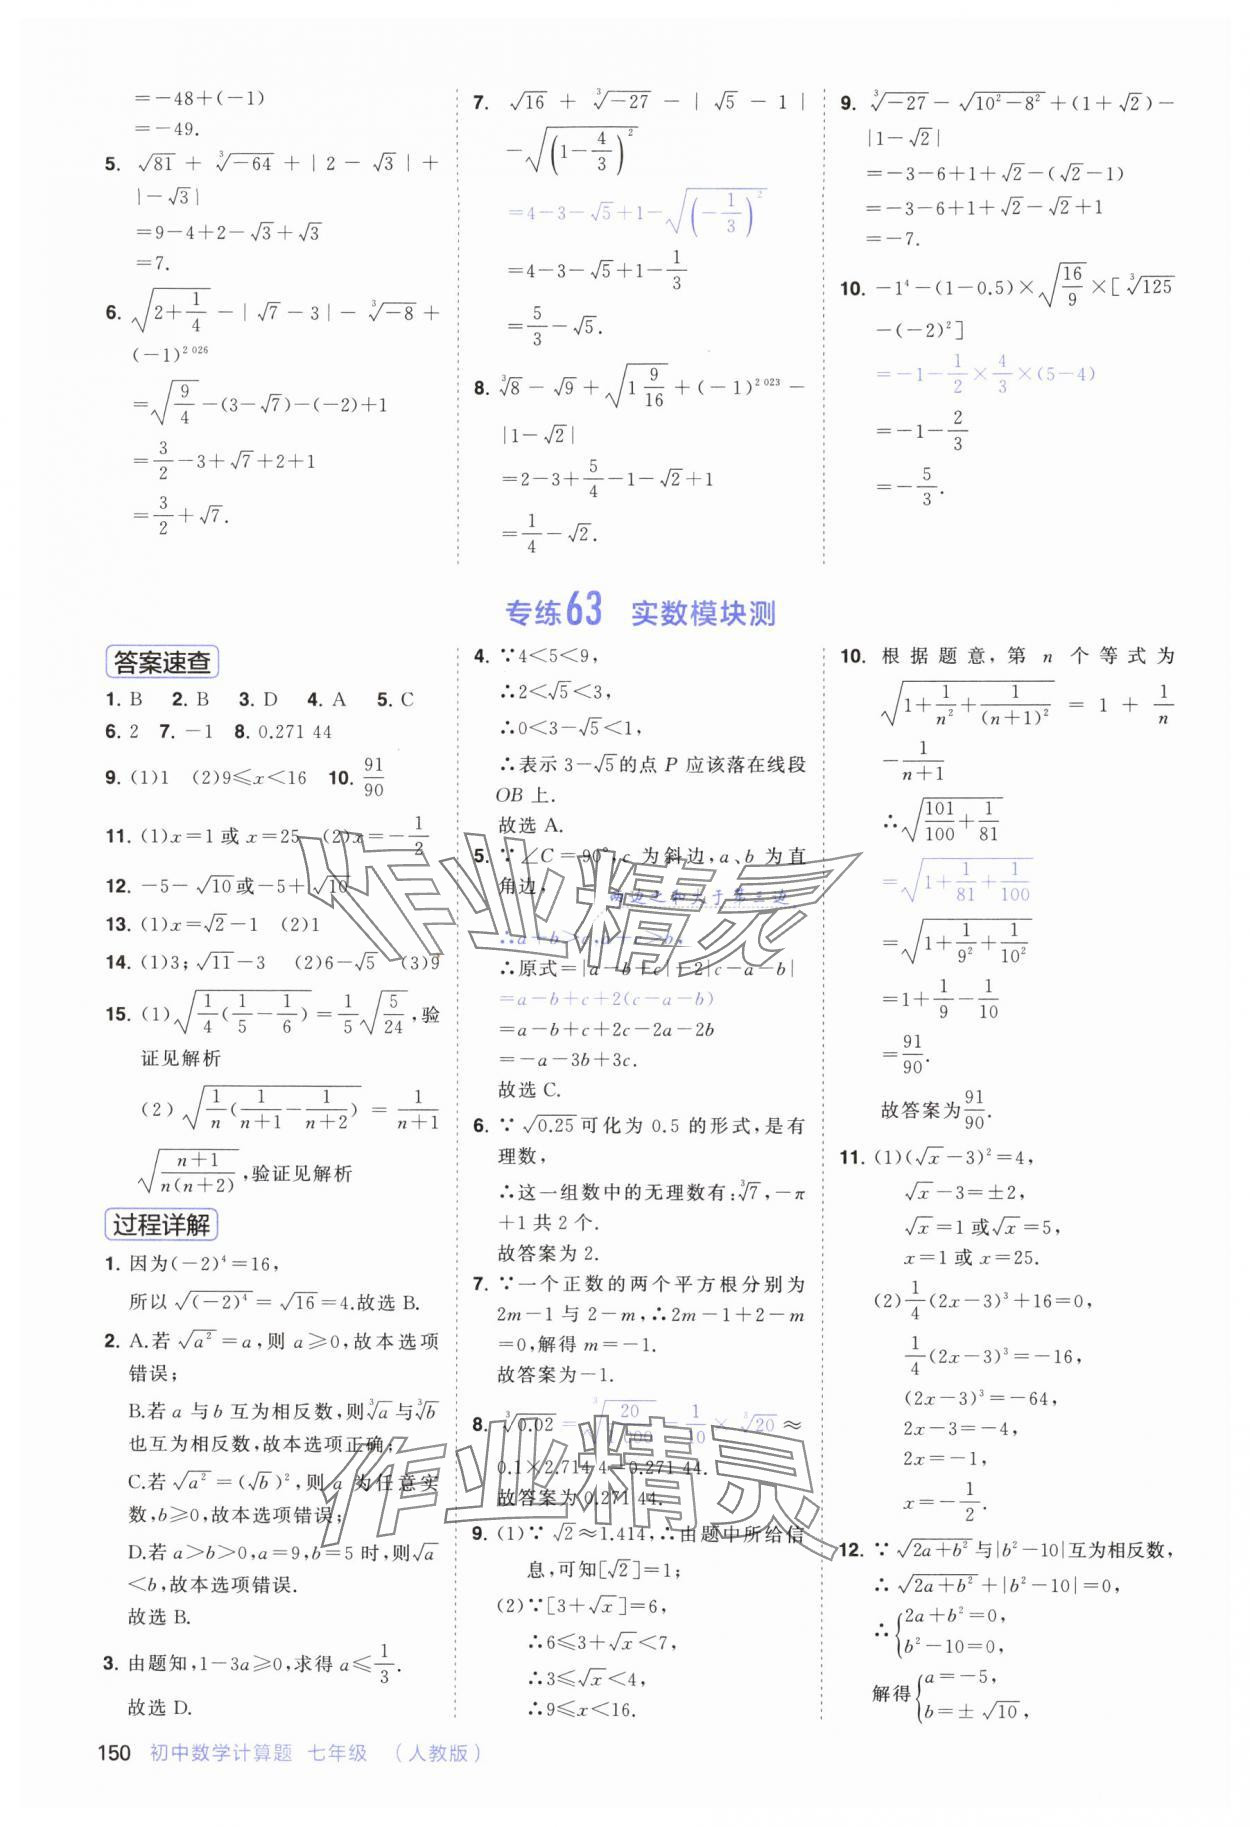 =-48+(-1)
=-49.
5. √81 + ∛-64 + |2-√3| +
|-√3|
=9-4+2-√3+√3
=7.
6. √(2+1/4) - |√7-3| - ∛-8 +
(-1)²⁰²⁶
=√(9/4)-(3-√7)-(-2)+1
=3/2-3+√7+2+1
=3/2+√7.
7. √16 + ∛-27 - |√5-1|
-√((1-4/3)²)
=4-3-√5+1-√((-1/3)²)
=4-3-√5+1-1/3
=5/3-√5.
8. ∛8-√9+√(1 9/16)+(-1)²⁰²³-
|1-√2|
=2-3+5/4-1-√2+1
=1/4-√2.
9. ∛-27-√(10²-8²)+(1+√2)-
|1-√2|
=-3-6+1+√2-(√2-1)
=-3-6+1+√2-√2+1
=-7.
10. -1⁴-(1-0.5)×√(16/9)×[∛125
-(-2)²]
=-1-1/2×4/3×(5-4)
=-1-2/3
=-5/3.
专练63 实数模块测
答案速查
1. B 2. B 3. D 4. A 5. C
6. 2 7. -1 8. 0.271 44
9. (1)1 (2)9≤x<16 10. 91/90
11. (1)x=1或x=25 (2)x=-1/2
12. -5-√10或-5+√10
13. (1)x=√2-1 (2)1
14. (1)3;√11-3 (2)6-√5 (3)9
15. (1)√(1/4(1/5-1/6))=1/5√(5/24),验
证见解析
(2)√(1/n(1/(n+1)-1/(n+2)))=1/(n+1)
√((n+1)/(n(n+2))),验证见解析
过程详解
1. 因为(-2)⁴=16,
所以√((-2)⁴)=√16=4.故选B.
2. A.若√(a²)=a,则a≥0,故本选项
错误;
B.若a与b互为相反数,则∛a与∛b
也互为相反数,故本选项正确;
C.若√(a²)=(√b)²,则a为任意实
数,b≥0,故本选项错误;
D.若a>b>0,a=9,b=5时,则√a
<b,故本选项错误.
故选B.
3. 由题知,1-3a≥0,求得a≤1/3.
故选D.
4. ∵4<5<9,
∴2<√5<3,
∴0<3-√5<1,
∴表示3-√5的点P应该落在线段
OB上.
故选A.
5. ∵∠C=90°,c为斜边,a、b为直
角边,
两边之和大于第三边
∴a+b>c,b+c>b,
∴原式=|a-b+c|+2|c-a-b|
=a-b+c+2(c-a-b)
=a-b+c+2c-2a-2b
=-a-3b+3c.
故选C.
6. ∵√0.25可化为0.5的形式,是有
理数,
∴这一组数中的无理数有:∛7,-π
+1共2个.
故答案为2.
7. ∵一个正数的两个平方根分别为
2m-1与2-m,∴2m-1+2-m
=0,解得m=-1.
故答案为-1.
8. ∛0.02=∛(20/1 000)=1/10×∛20≈
0.1×2.714 4=0.271 44.
故答案为0.271 44.
9. (1)∵√2≈1.414,∴由题中所给信
息,可知[√2]=1;
(2)∵[3+√x]=6,
∴6≤3+√x<7,
∴3≤√x<4,
∴9≤x<16.
10. 根据题意,第n个等式为
√(1+1/n²+1/(n+1)²)=1+1/n
-1/(n+1)
∴√(101/100+1/81)
=√(1+1/81+1/100)
=√(1+1/9²+1/10²)
=1+1/9-1/10
=91/90.
故答案为91/90.
11. (1)(√x-3)²=4,
√x-3=±2,
√x=1或√x=5,
x=1或x=25.
(2)1/4(2x-3)³+16=0,
1/4(2x-3)³=-16,
(2x-3)³=-64,
2x-3=-4,
2x=-1,
x=-1/2.
12. ∵√(2a+b²)与|b²-10|互为相反数,
∴√(2a+b²)+|b²-10|=0,
∴{2a+b²=0,
b²-10=0,
解得{a=-5,
b=±√10,
150 初中数学计算题 七年级 (人教版)
作业精灵
作业精灵